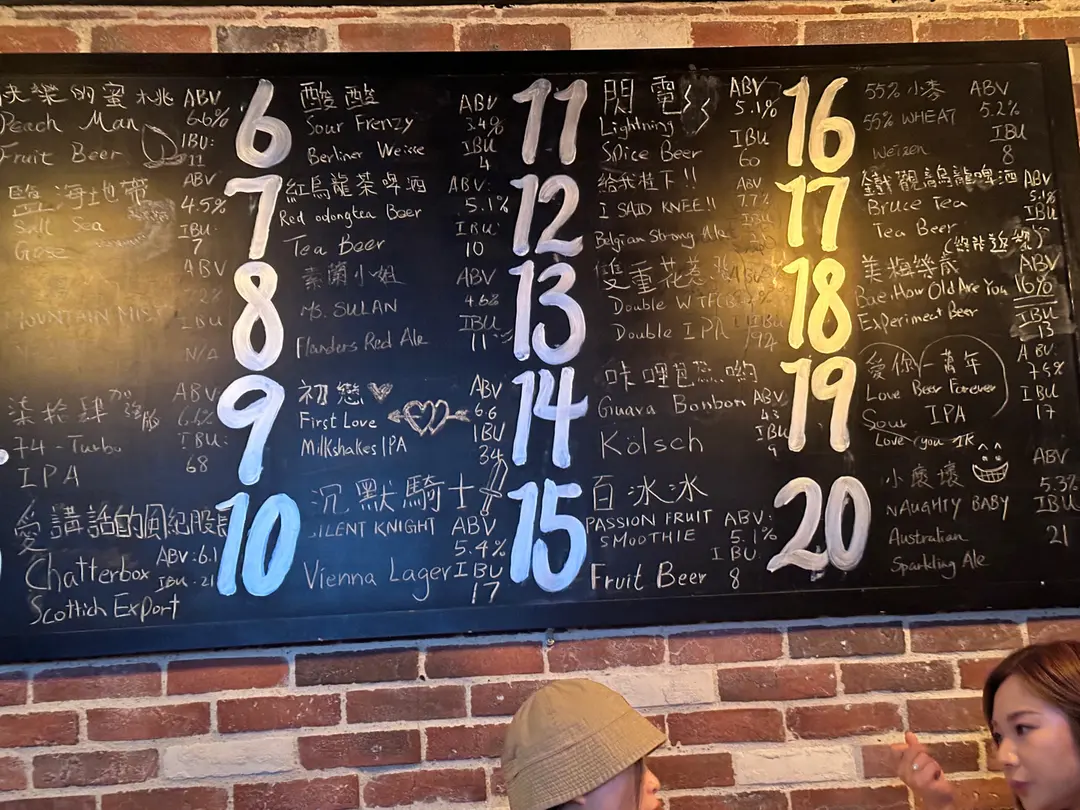 快樂的蜜桃 ABV
Peach Man 6.6%
Fruit Beer IBU:
11
鹽海地帶 ABV
Salt Sea 4.5%
Gose IBU:
7
ABV
MOUNTAIN MIST
IBU
N/A
柒拾肆加強版 ABV
74-Turbo 6.6%
IPA IBU:
68
愛講話的風紀股長
Chatterbox ABV:6.1
IBU:21
Scottich Export
6
酸酸 ABV
Sour Frenzy 3.4%
Berliner Weisse IBU
4
7
紅烏龍茶啤酒 ABV:
Red oolongtea Beer 5.1%
Tea Beer IBU:
10
8
素蘭小姐 ABV
Ms. SULAN 4.6%
Flanders Red Ale IBU
11
9
初戀 ABV
First Love 6.6
Milkshakes IPA IBU
34
10
沉默騎士
SILENT KNIGHT ABV
5.4%
Vienna Lager IBU
17
11
閃電 ABV
Lightning 5.1%
Spice Beer IBU
60
12
給我跪下!! ABV
I SAID KNEE!! 7.7%
Belgian Strong Ale IBU
13
雙重 ABV
Double
Double IPA IBU
14
咔哩 ABV
Guava Bonbon 4.3
Kölsch IBU
9
15
百冰冰
PASSION FRUIT ABV:
SMOOTHIE 5.1%
IBU:
Fruit Beer 8
16
55%小麥 ABV
55% WHEAT 5.2%
Weizen IBU
8
17
鐵觀音烏龍啤酒 ABV
Bruce Tea 5.1%
Tea Beer IBU
18
美梅幾歲 ABV
Bae, How Old Are You 16%
Experiment Beer IBU
13
19
愛你一萬年 ABV:
Love Beer Forever 7.5%
Sour IPA IBU
Love you 1K 17
20
小壞壞 ABV
NAUGHTY BABY 5.3%
Australian IBU
Sparkling Ale 21